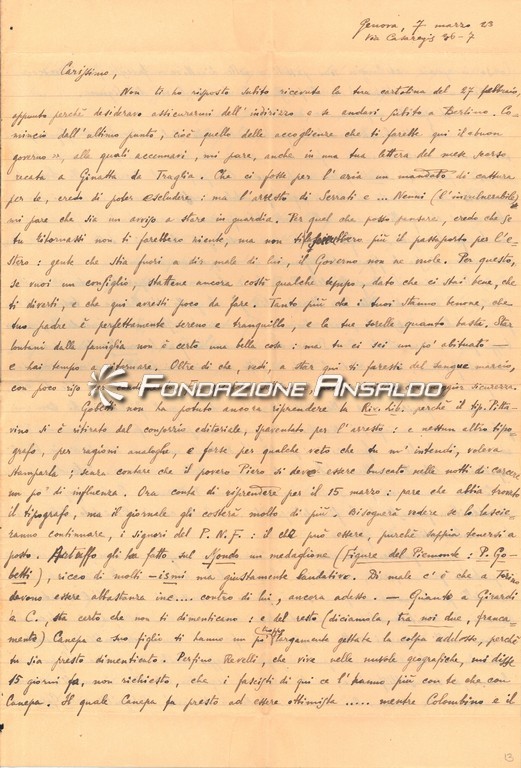 Genova, 7 marzo 23
Via Casaregis 36-7
Carissimo,
Non ti ho risposto subito ricevuta la tua cartolina del 27 febbraio,
appunto perché desideravo assicurarmi dell'indirizzo e se andavi subito a Berlino. Co-
mincio dell'ultimo punto, cioè quello delle accoglienze che ti farebbe qui il «buon
governo», alle quali accennavi, mi pare, anche in una tua lettera del mese scorso
recata a Ginatta da Traglia. Che ci fosse per l'aria un mandato di cattura
per te, credo di poter escludere: ma l'arresto di Serrati e ... Nenni (l'invulnerabile)
mi pare che sia un avviso a stare in guardia. Per quel che posso pensare, credo che se
tu ritornassi non ti farebbero niente, ma non ti più il passaporto per l'e-
stero: gente che stia fuori a dir male di lui, il Governo non ne vuole. Per questo,
se vuoi un consiglio, stattene ancora costì qualche tempo, dato che ci stai bene, che
ti diverti, e che qui avresti poco da fare. Tanto più che i tuoi stanno benone, che
tuo padre è perfettamente sereno e tranquillo, e le tue sorelle quanto basta. Star
lontani dalla famiglia non è certo una bella cosa: ma tu ci sei un po' abituato -
e hai tempo a ritornare. Oltre di che, vedi, a star qui ti faresti del sangue marcio,
con poco
FONDAZIONE ANSALDO
sicurezza.
Gobetti non ha potuto ancora riprendere la Riv. Lib. perché il tip. Pitta-
vino si è ritirato del consorzio editoriale, spaventato per l'arresto: e nessun altro tipo-
grafo, per ragioni analoghe, e forse per qualche veto che tu m'intendi, voleva
stamparla; senza contare che il povero Piero si deve essere buscato nelle notti di carcere
un po' di influenza. Ora conta di riprendere per il 15 marzo: pare che abbia trovato
il tipografo, ma il giornale gli costerà molto di più. Bisognerà vedere se lo lasce-
ranno continuare, i signori del P.N.F.: il che può essere, purché sappia tenersi a
posto. gli ha fatto sul Mondo un medaglione (Figure del Piemonte: P. Go-
betti), ricco di molti -ismi ma giustamente laudativo. Di male c'è che a Torino
devono essere abbastanza inc.... contro di lui, ancora adesso. - Quanto a Girardi
a C. sta certo che non ti dimenticano: e del resto (diciamola, tra noi due, franca-
mente) Canepa e suo figlio ti hanno un po' largamente gettata la colpa addosso, perché
tu sia presto dimenticato. Perfino Revelli, che vive nelle nuvole geografiche, mi disse
15 giorni fa, non richiesto, che i fascisti di qui ce l'hanno più con te che con
Canepa. Il quale Canepa fa presto ad essere ottimista ..... mentre Colombino e il
13